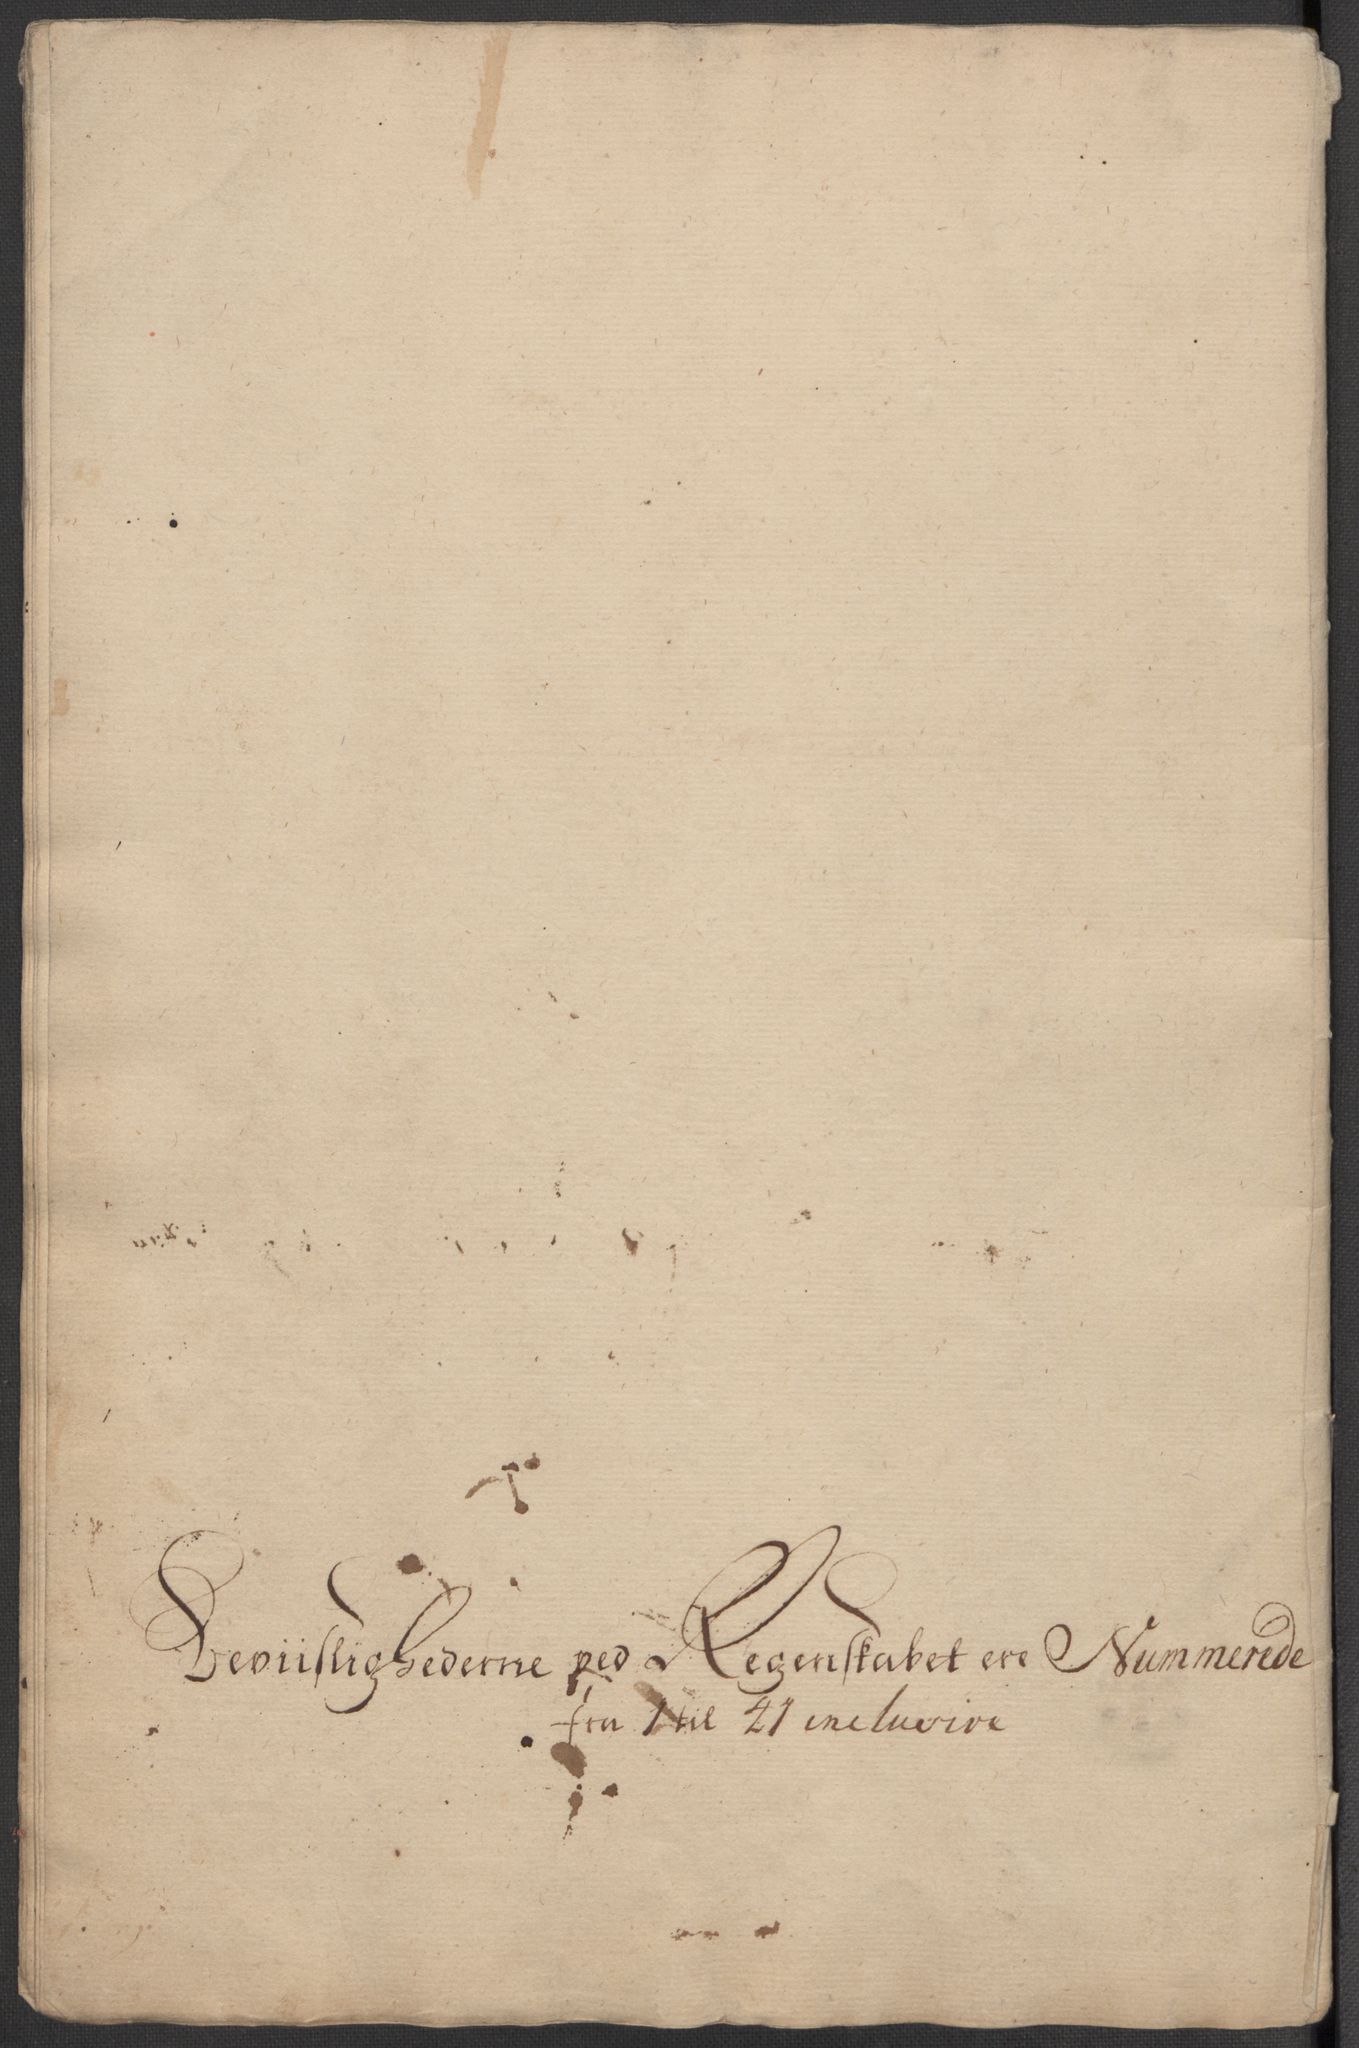 Beviislighederne ved Regenskabet ere Nummerede
fra 1 til 21 inclusive